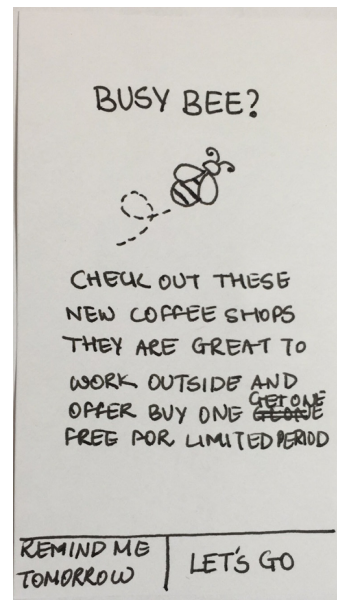 BUSY BEE?
CHECK OUT THESE
NEW COFFEE SHOPS
THEY ARE GREAT TO
WORK OUTSIDE AND
GET ONE
OFFER BUY ONE
FREE FOR LIMITED PERIOD
REMIND ME
TOMORROW
LET'S GO